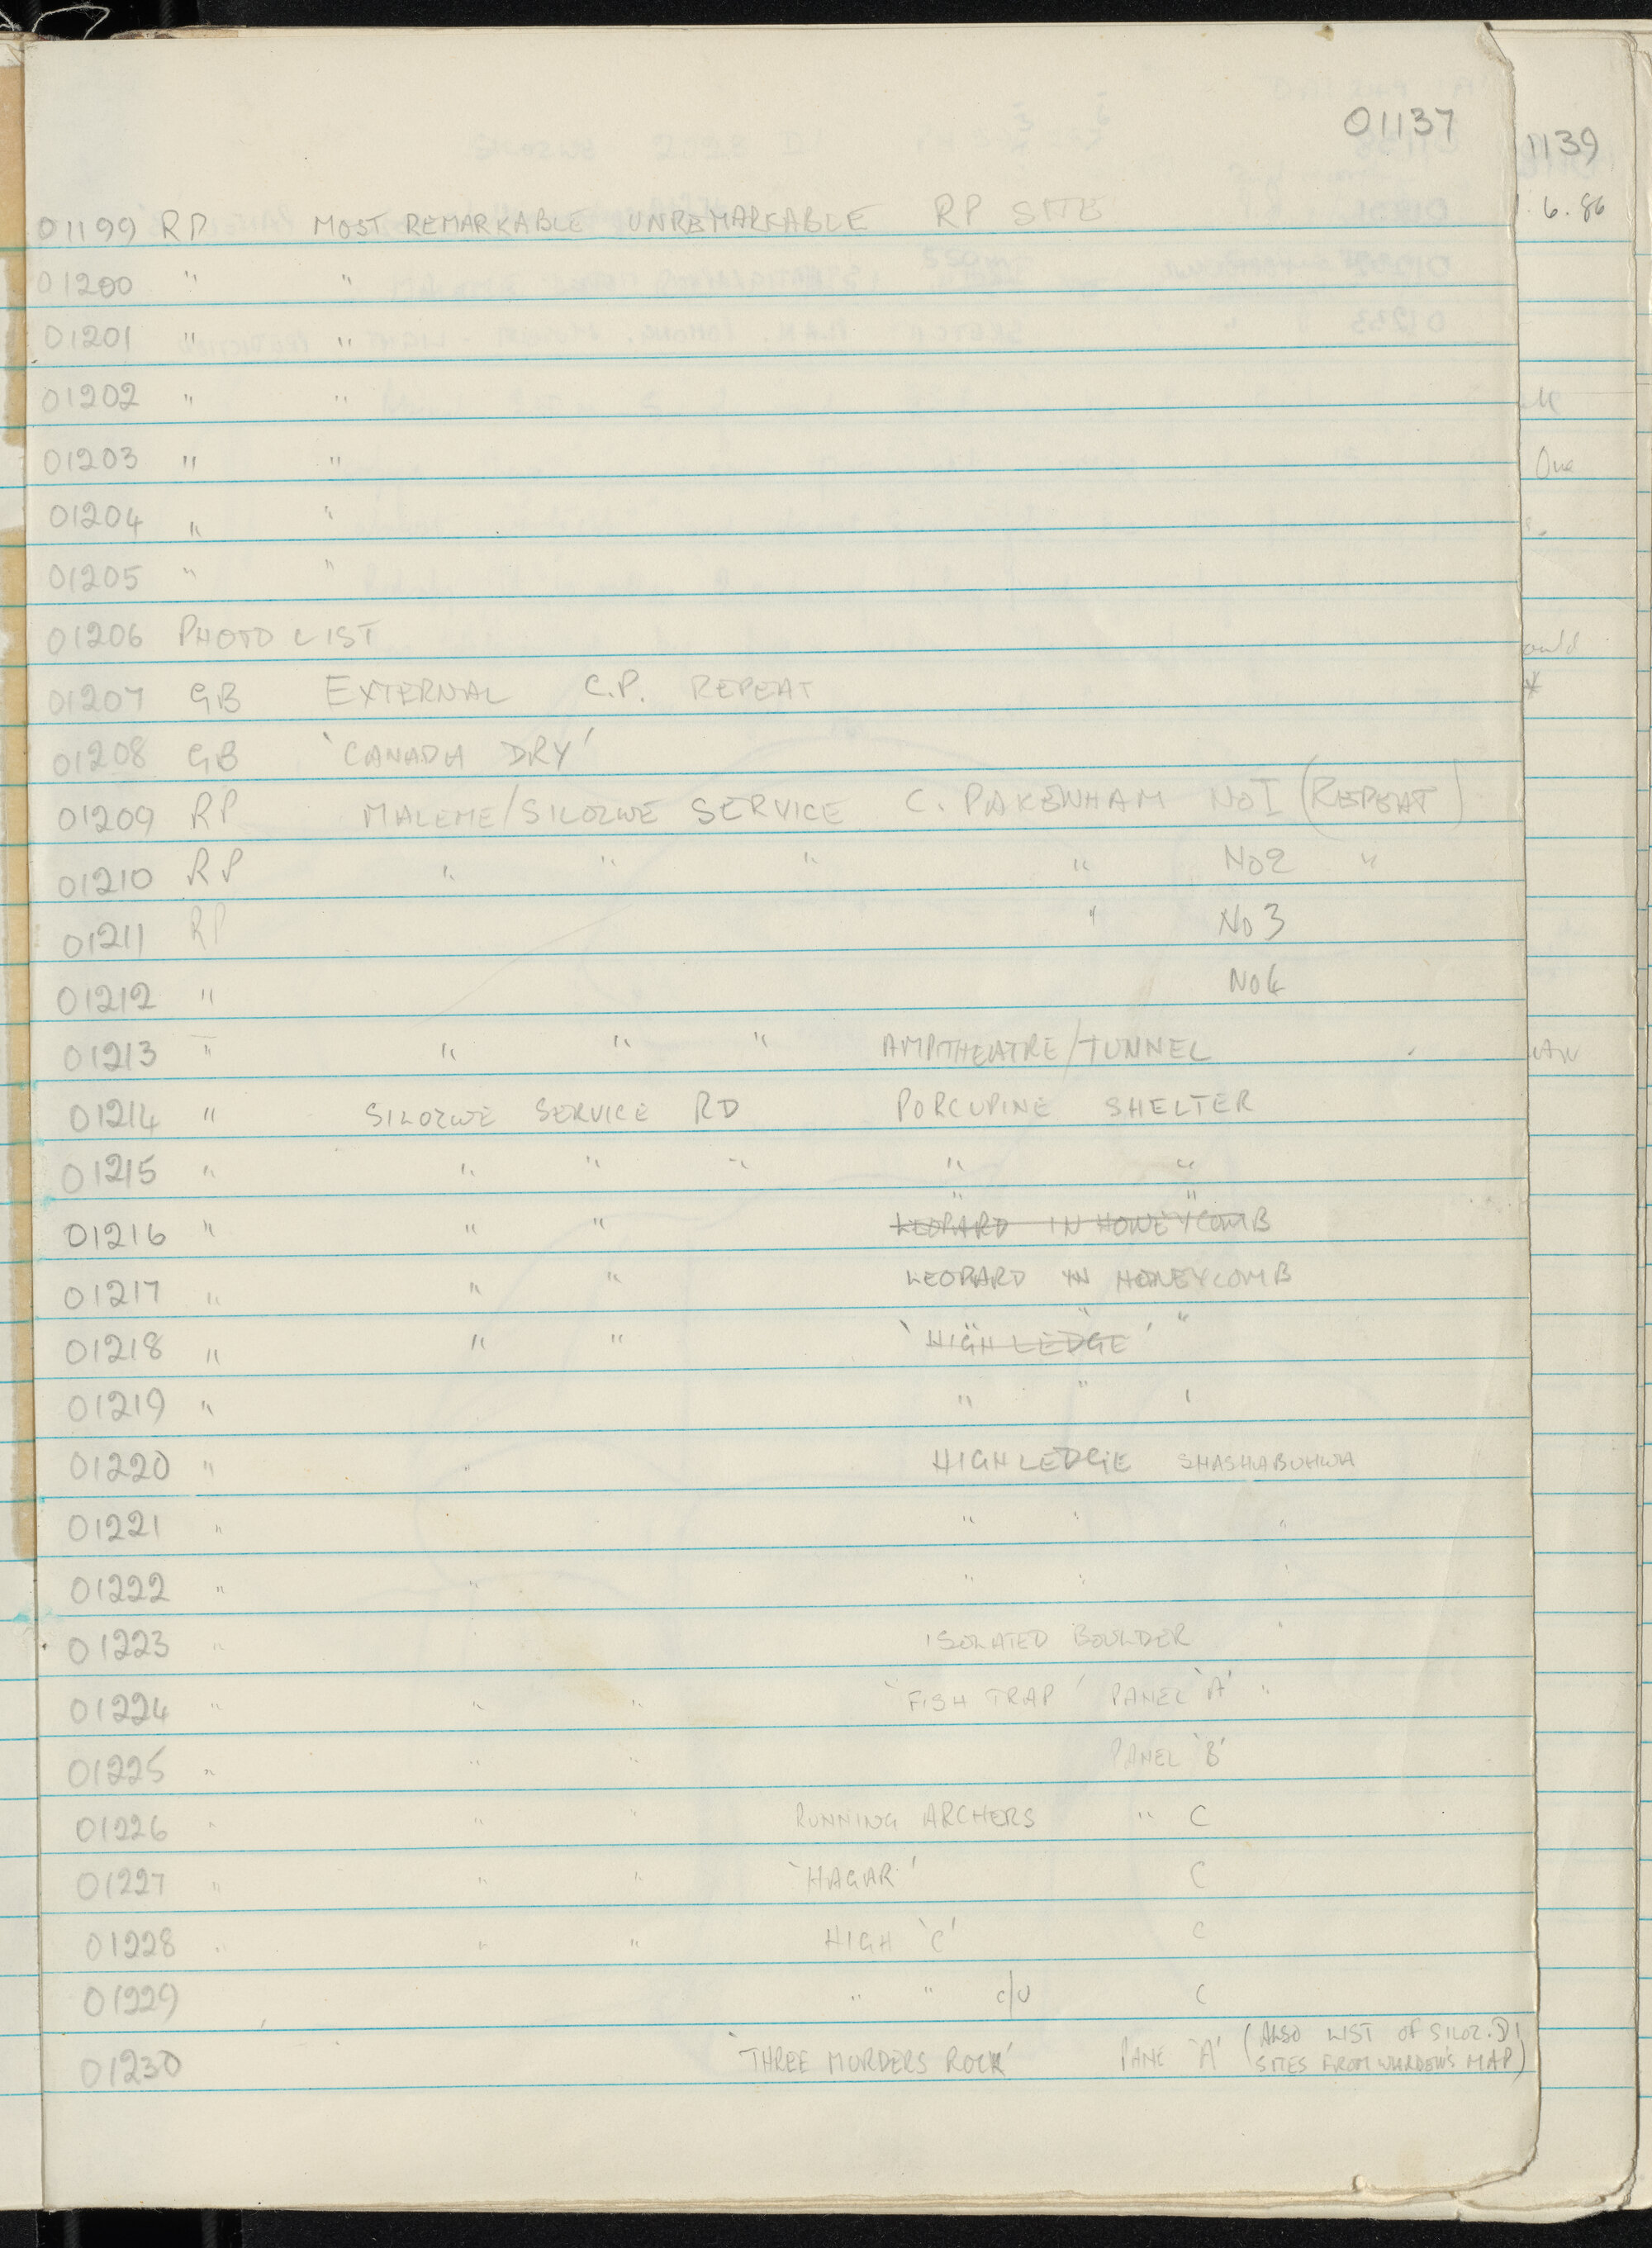 01137
01199 RP MOST REMARKABLE UNREMARKABLE RP SITE
01200 " "
01201 " "
01202 " "
01203 " "
01204 " "
01205 " "
01206 PHOTO LIST
01207 GB EXTERNAL C.P. REPEAT
01208 GB 'CANADA DRY'
01209 RP MALEME/SILOZWE SERVICE C. PAKENHAM No I (REPEAT)
01210 RP " " " " No 2 "
01211 RP " No 3
01212 " No 4
01213 " " " " AMPITHEATRE/TUNNEL
01214 " SILOZWE SERVICE RD PORCUPINE SHELTER
01215 " " " " " "
" "
01216 " " " LEOPARD IN HONEYCOMB
01217 " " " LEOPARD IN HONEYCOMB
" " "
01218 " " " 'HIGH LEDGE'
01219 " " " '
01220 " " HIGH LEDGE SHASHABUHWA
01221 " " " "
01222 " " " " "
01223 " ISOLATED BOULDER "
01224 " " " 'FISH TRAP' PANEL 'A' "
01225 " " " PANEL 'B'
01226 " " " RUNNING ARCHERS " C
01227 " " " 'HAGAR' C
01228 " " " HIGH 'C' C
01229 " " c/u C
01230 'THREE MURDERS ROCK' PANE 'A' (ALSO LIST OF SILOZ. DI
SITES FROM WARDEN'S MAP)
1139
6.86
One